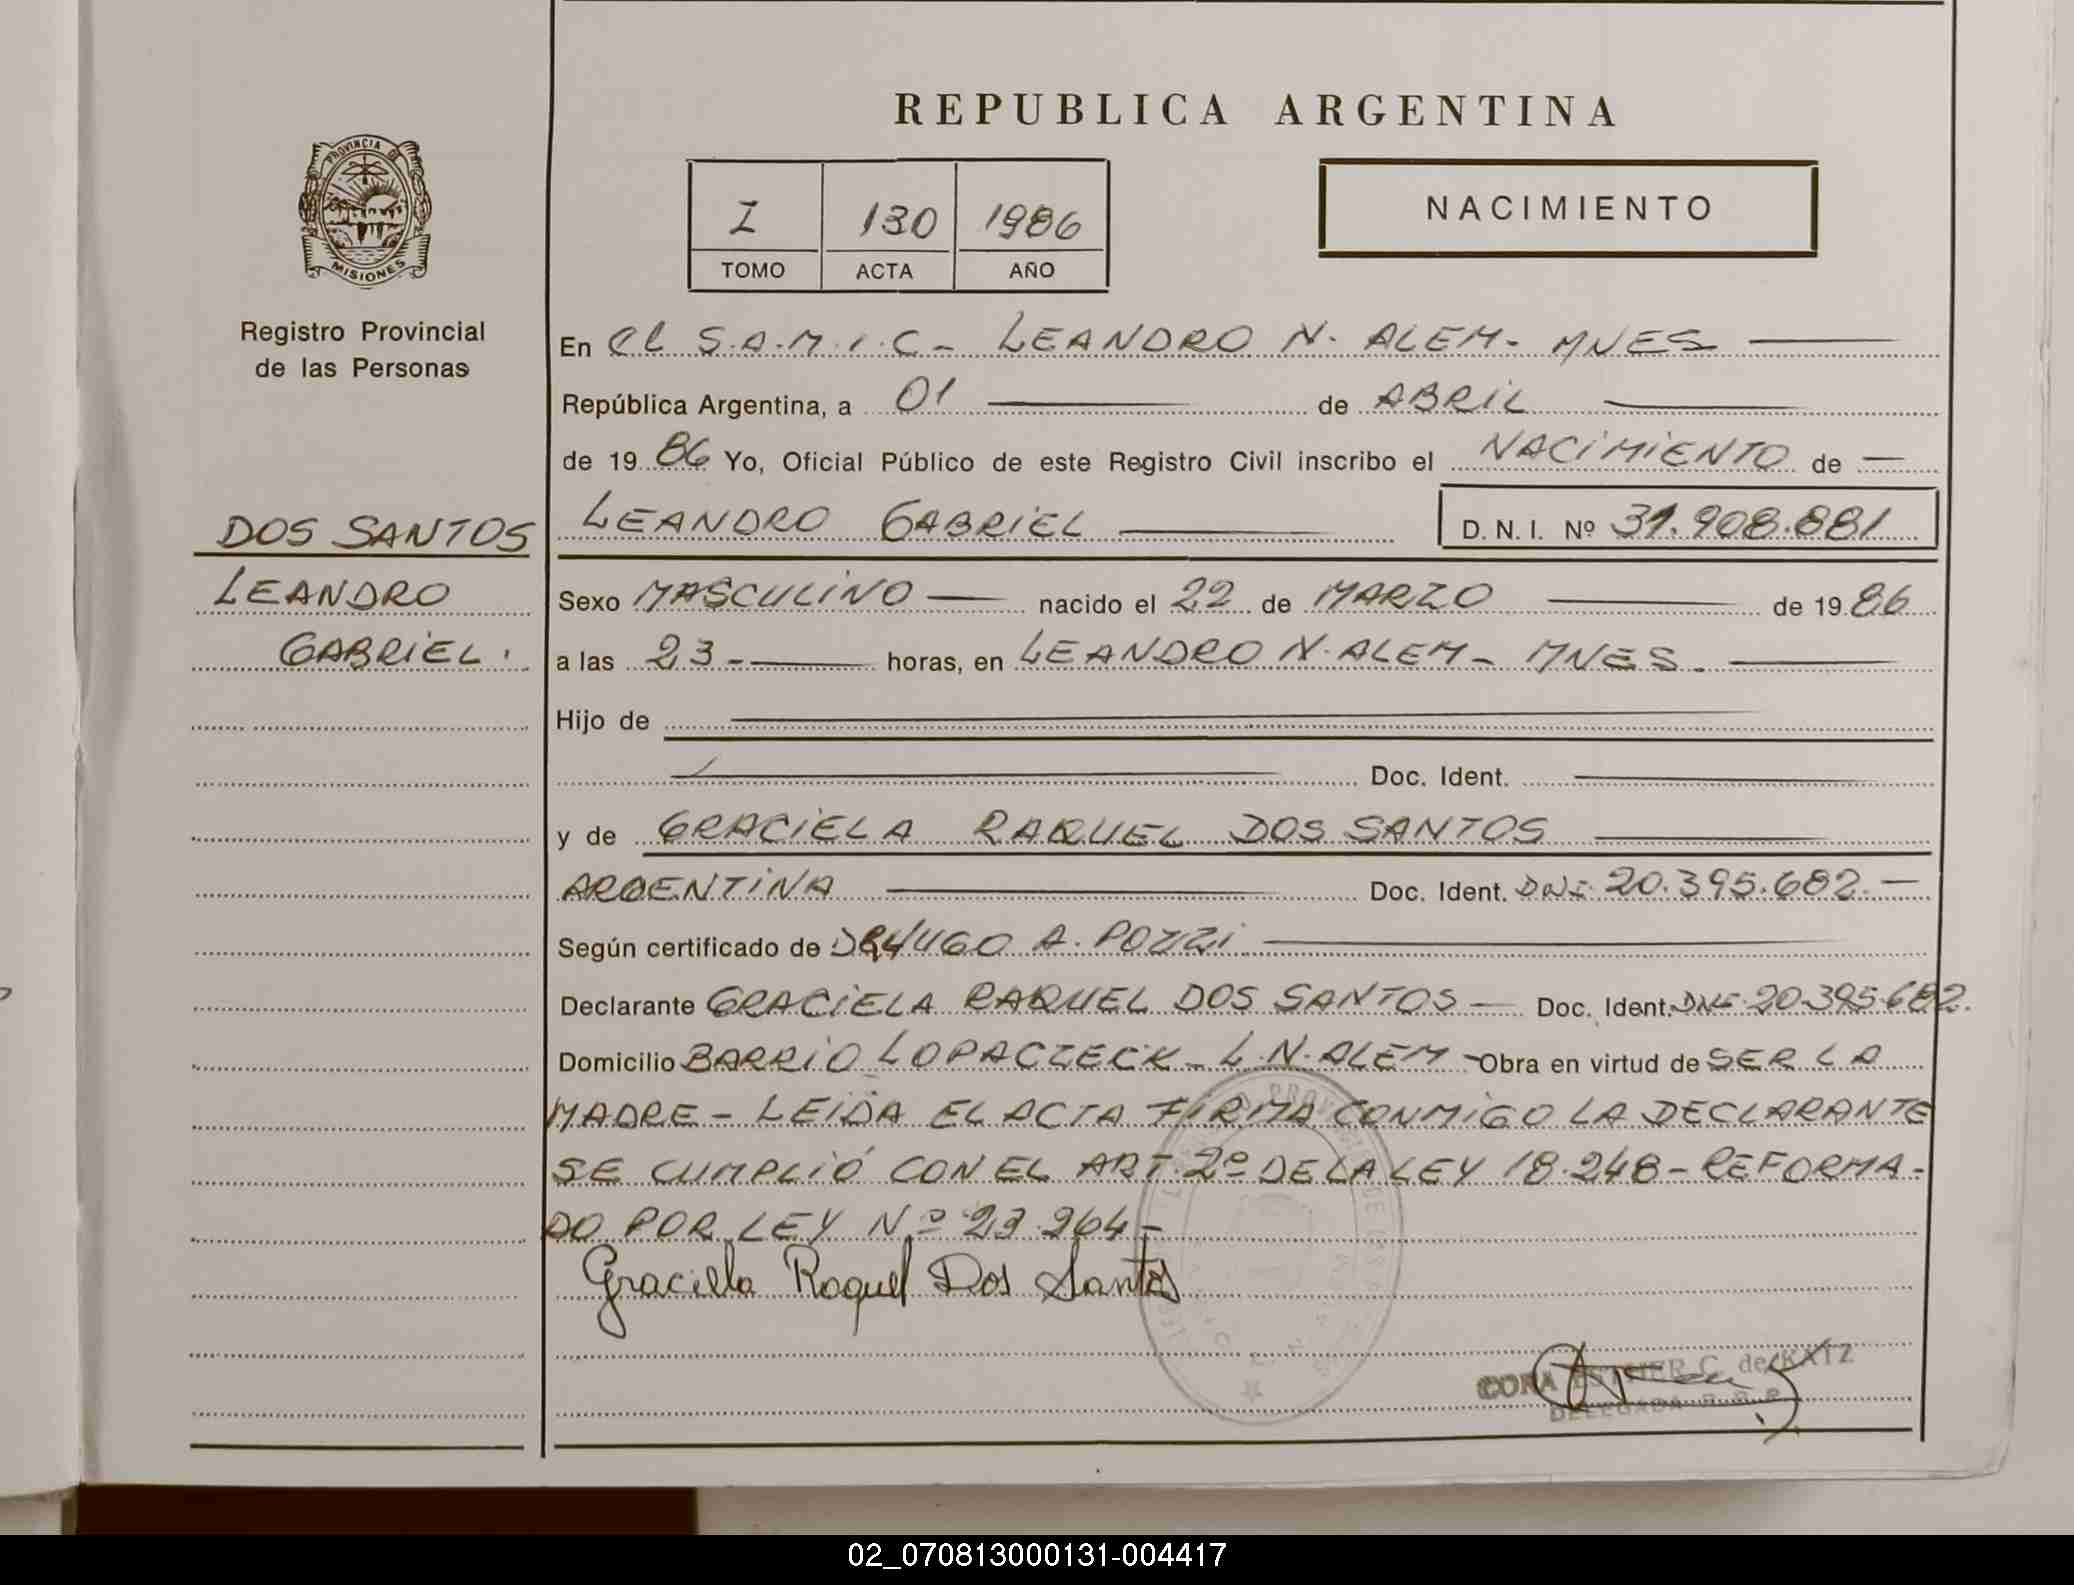 REPUBLICA ARGENTINA
PROVINCIA DE
MISIONES
Registro Provincial
de las Personas
I 130 1986
TOMO ACTA AÑO
NACIMIENTO
En el S.A.M.I.C- LEANDRO N. ALEM- MNES
República Argentina, a 01 de ABRIL
de 1986 Yo, Oficial Público de este Registro Civil inscribo el NACIMIENTO de
LEANDRO GABRIEL D.N.I. Nº 31.908.881
DOS SANTOS
LEANDRO
GABRIEL.
Sexo MASCULINO nacido el 22 de MARZO de 1986
a las 23- horas, en LEANDRO N. ALEM- MNES.
Hijo de
Doc. Ident.
y de GRACIELA RAQUEL DOS SANTOS
ARGENTINA Doc. Ident. DNI. 20.395.682.-
Según certificado de DR HUGO A. POZZI
Declarante GRACIELA RAQUEL DOS SANTOS - Doc. Ident. DNI. 20.395.682.
Domicilio BARRIO LOPACZECK - L.N. ALEM - Obra en virtud de SER LA
MADRE - LEIDA EL ACTA FIRMA CONMIGO LA DECLARANTE
SE CUMPLIÓ CON EL ART. 2º DE LA LEY 18.248 - REFORMA-
DO POR LEY Nº 23.264-
Graciela Raquel Dos Santos
CORA ESTHER C. de KATZ
DELEGADA
02_070813000131-004417